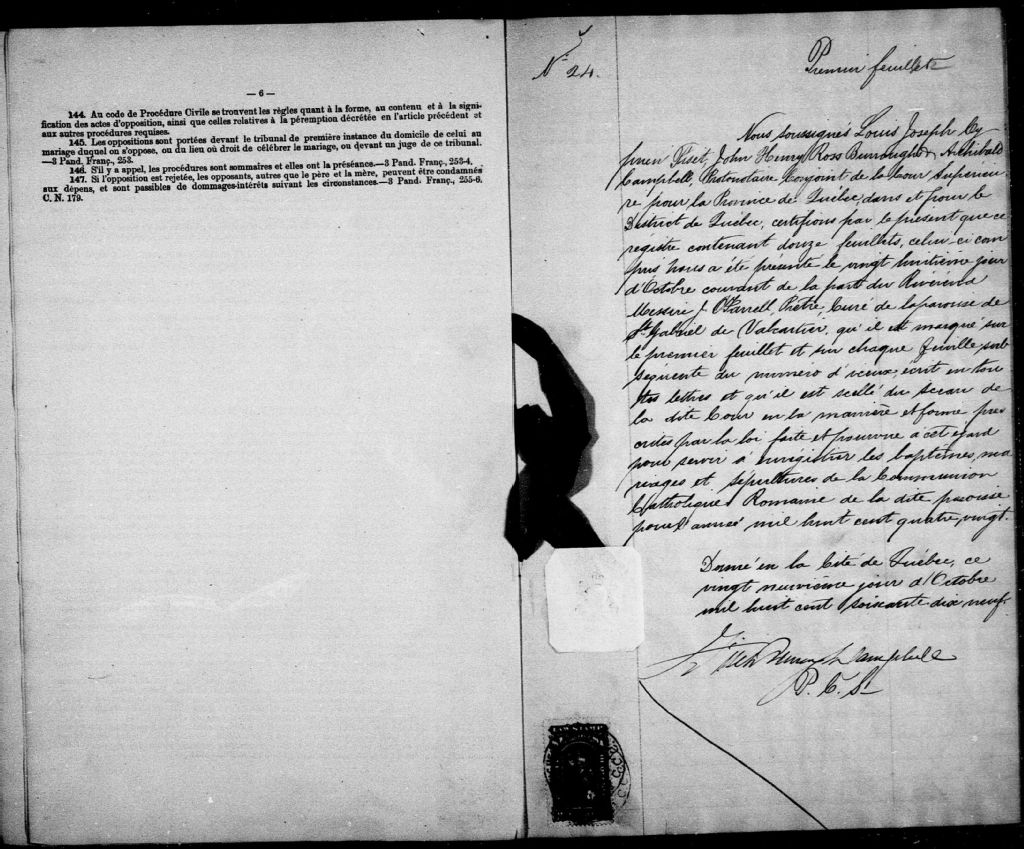 — 6 —
144. Au code de Procédure Civile se trouvent les règles quant à la forme, au contenu et à la signi-
fication des actes d'opposition, ainsi que celles relatives à la péremption décrétée en l'article précédent et
aux autres procédures requises.
145. Les oppositions sont portées devant le tribunal de première instance du domicile de celui au
mariage duquel on s'oppose, ou du lieu où droit de célébrer le mariage, ou devant un juge de ce tribunal.
—3 Pand. Franç., 253.
146. S'il y a appel, les procédures sont sommaires et elles ont la préséance.—3 Pand. Franç., 253-4.
147. Si l'opposition est rejetée, les opposants, autres que le père et la mère, peuvent être condamnés
aux dépens, et sont passibles de dommages-intérêts suivant les circonstances.—3 Pand. Franç., 255-6,
C. N. 179.
No 24.
Premier feuillet
Nous soussignés Louis Joseph Cy
prien Fiset, John Henry Ross Burroughs & Archibald
Campbell, Protonotaire Conjoint de la Cour Supérieu-
re pour la Province de Québec, dans et pour le
District de Québec, certifions par le présent que ce
registre contenant douze feuillets, celui-ci com
pris nous a été présenté le vingt huitième jour
d'Octobre courant de la part du Révérend
Messire J. O'Farrell, Prêtre, Curé de la paroisse de
St. Gabriel de Valcartier, qu'il est marqué sur
le premier feuillet et sur chaque feuille sub
séquente du numéro d'iceux, écrit en tou
tes lettres et qu'il est scellé du sceau de
la dite Cour en la manière et forme pres
crites par la loi faite et pourvue à cet égard
pour servir à enrégistrer les baptêmes, ma
riages et sépultures de la Communion
Catholique Romaine de la dite paroisse
pour l'année mil huit cent quatre vingt.
Donné en la Cité de Québec, ce
vingt neuvième jour d'Octobre
mil huit cent soixante dix neuf.
Fiset Burroughs Campbell
P. C. S.